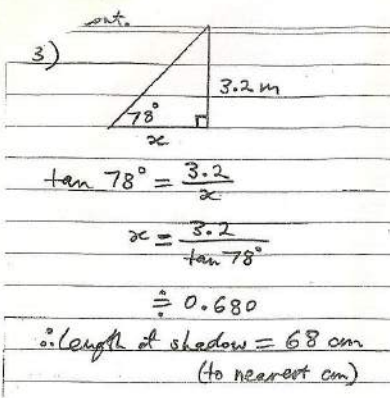 cont.
3)
3.2 m
78°
x
tan 78° = 3.2/x
x = 3.2/tan 78°
≑ 0.680
∴ length of shadow = 68 cm
(to nearest cm)